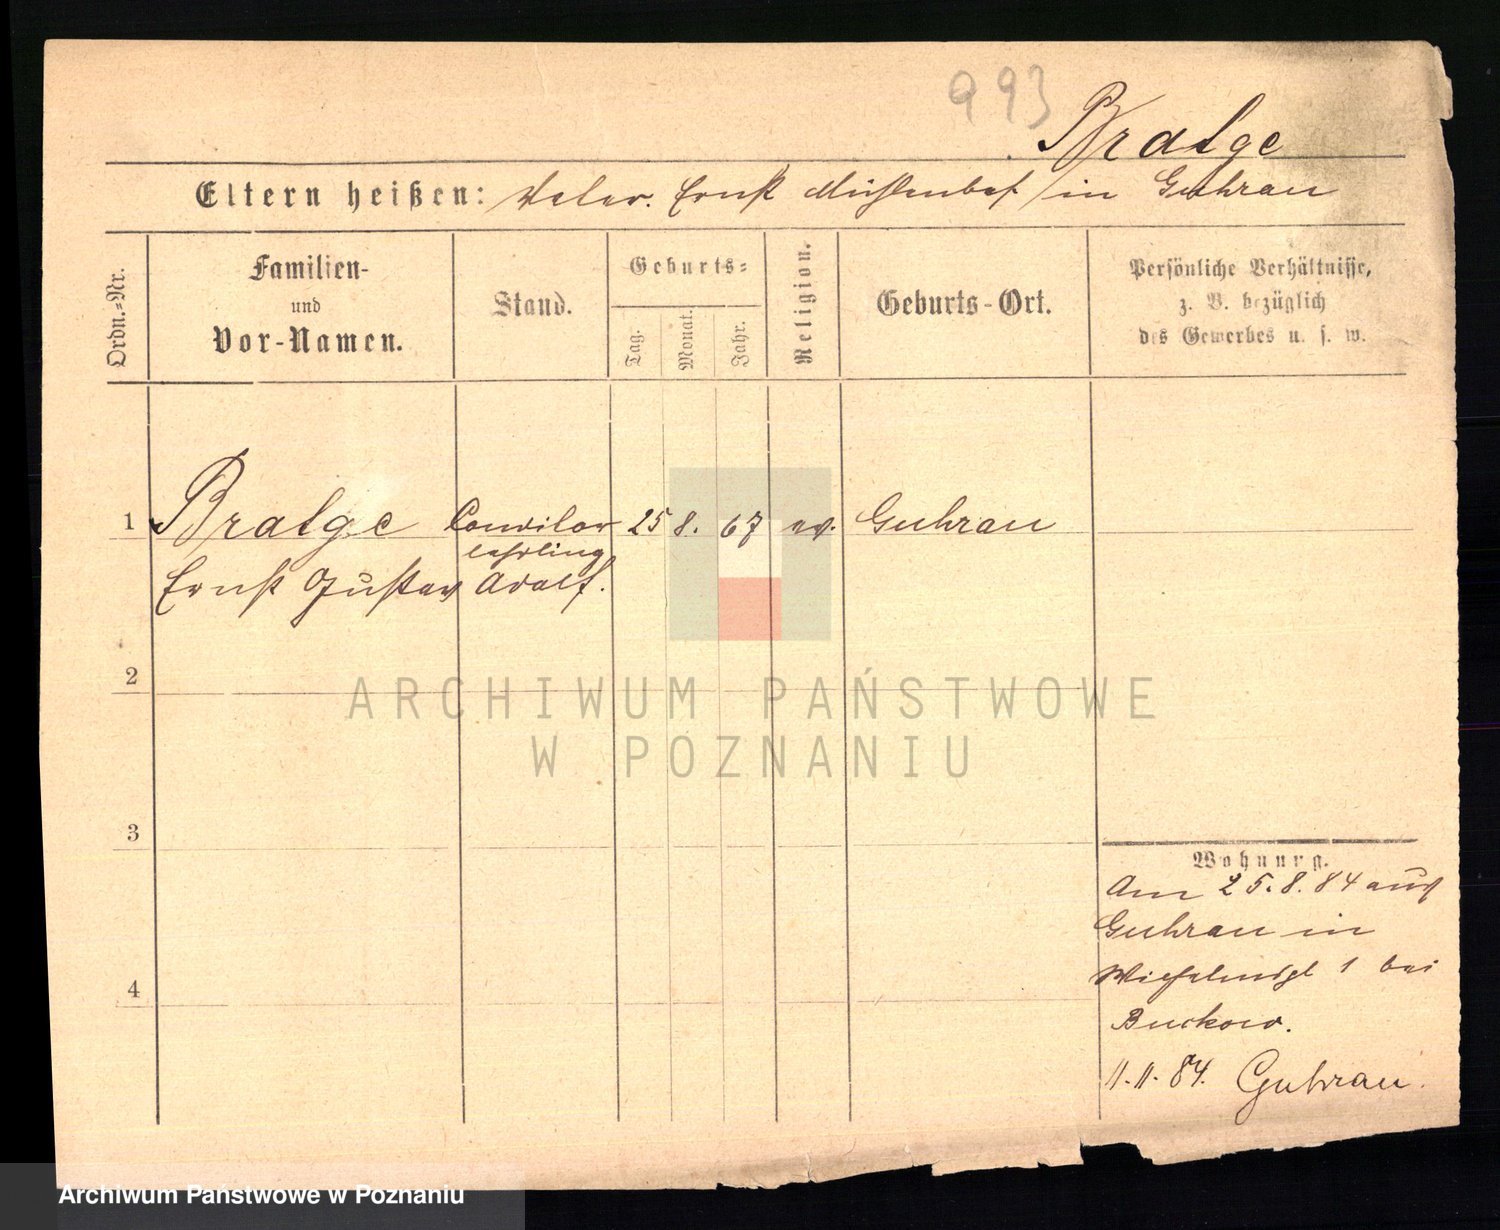 993
Bratge
Eltern heißen: Vater. Ernst in Guhrau
Ordn.-Nr.
Familien-
und
Vor-Namen.
Stand.
Geburts-
Tag.
Monat.
Jahr.
Religion.
Geburts-Ort.
Persönliche Verhältnisse,
z. B. bezüglich
des Gewerbes u. s. w.
1 Bratge Conditor 25 8. 67 ev. Guhrau
lehrling
Ernst Gustav Adolf.
2
ARCHIWUM PAŃSTWOWE
W POZNANIU
3
Wohnung.
Am 25.8.84 aus
Guhrau in
1 bei
Buckow.
4
11.11.84. Guhrau.
Archiwum Państwowe w Poznaniu